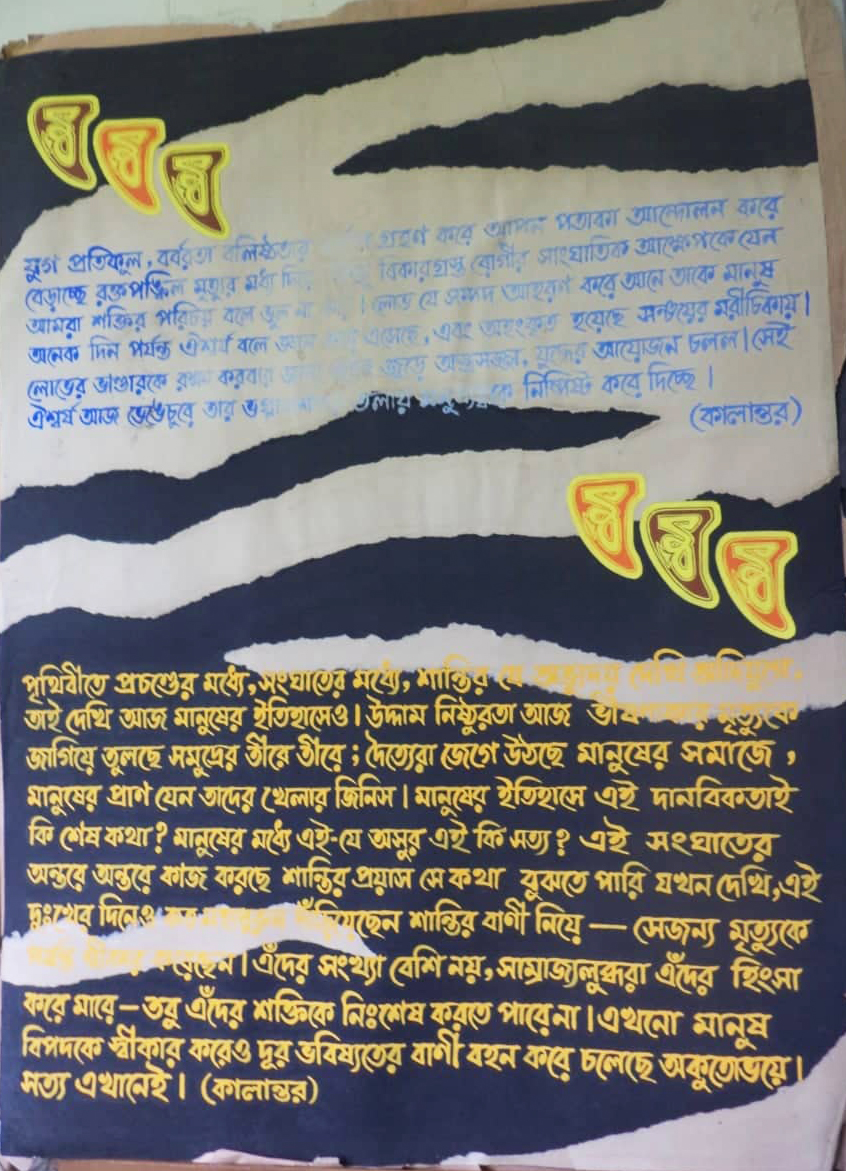 যুগ প্রতিকূল, বর্বরতা বলিষ্ঠতার গ্রহণ করে আপন পতাকা আন্দোলন করে
বেড়াচ্ছে রক্তপঙ্কিল মৃত্যুর মধ্য দিয়ে বিকারগ্রস্ত রোগীর সাংঘাতিক আক্ষেপকে যেন
আমরা শক্তির পরিচয় বলে ভুল না লোভ যে সম্পদ আহরণ করে আনে তাকে মানুষ
অনেক দিন পর্যন্ত ঐশ্বর্য বলে জ্ঞান করে এসেছে, এবং অহংকৃত হয়েছে সঞ্চয়ের মরীচিকায়।
লোভের ভাণ্ডারকে রক্ষা করবার জুড়ে অস্ত্রসজ্জা, যুদ্ধের আয়োজন চলল। সেই
ঐশ্বর্য আজ ভেঙেচুরে তার তলায় মনুষ্যত্বকে নিষ্পিষ্ট করে দিচ্ছে।
(কালান্তর)
পৃথিবীতে প্রচণ্ডের মধ্যে, সংঘাতের মধ্যে, শান্তির যে দেখি
তাই দেখি আজ মানুষের ইতিহাসেও। উদ্দাম নিষ্ঠুরতা আজ মৃত্যুকে
জাগিয়ে তুলছে সমুদ্রের তীরে তীরে; দৈত্যেরা জেগে উঠছে মানুষের সমাজে,
মানুষের প্রাণ যেন তাদের খেলার জিনিস। মানুষের ইতিহাসে এই দানবিকতাই
কি শেষ কথা? মানুষের মধ্যে এই-যে অসুর এই কি সত্য? এই সংঘাতের
অন্তরে অন্তরে কাজ করছে শান্তির প্রয়াস সে কথা বুঝতে পারি যখন দেখি, এই
দুঃখের দিনেও কত দাঁড়িয়েছেন শান্তির বাণী নিয়ে — সেজন্য মৃত্যুকে
পর্যন্ত স্বীকার করেছেন। এঁদের সংখ্যা বেশি নয়, সাম্রাজ্যলুব্ধরা এঁদের হিংসা
করে মারে – তবু এঁদের শক্তিকে নিঃশেষ করতে পারে না। এখনো মানুষ
বিপদকে স্বীকার করেও দূর ভবিষ্যতের বাণী বহন করে চলেছে অকুতোভয়ে।
সত্য এখানেই। (কালান্তর)